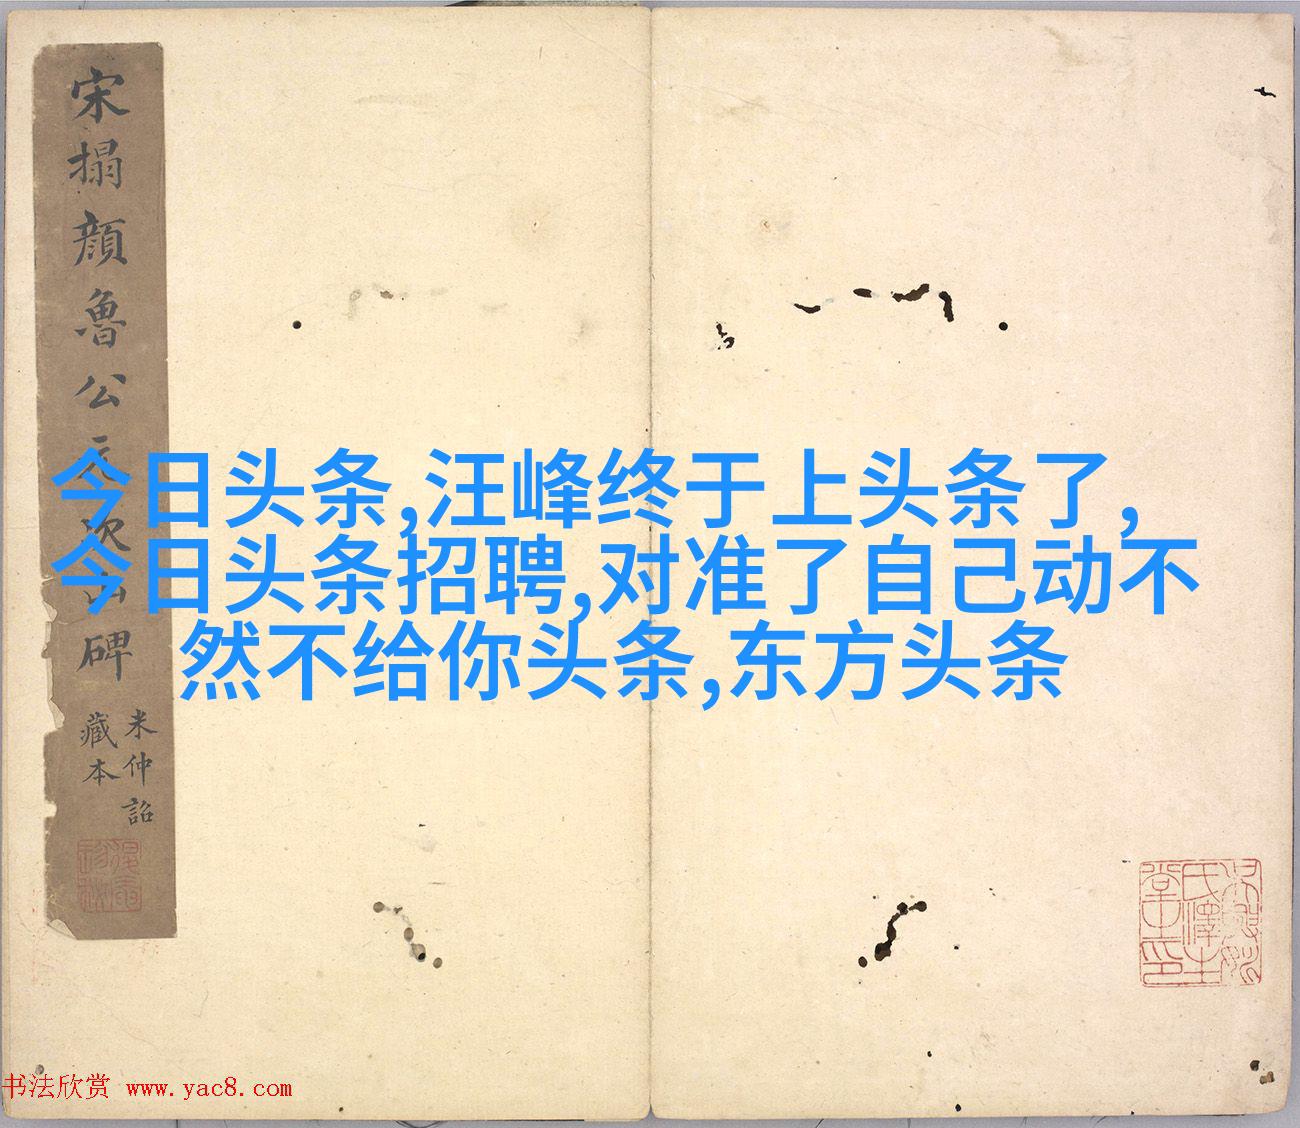 宋搨顏魯公元次山碑
米仲詔
藏本
今日头条,汪峰终于上头条了,
今日头条招聘,对准了自己动不
然不给你头条,东方头条
书法欣赏 www.yac8.com